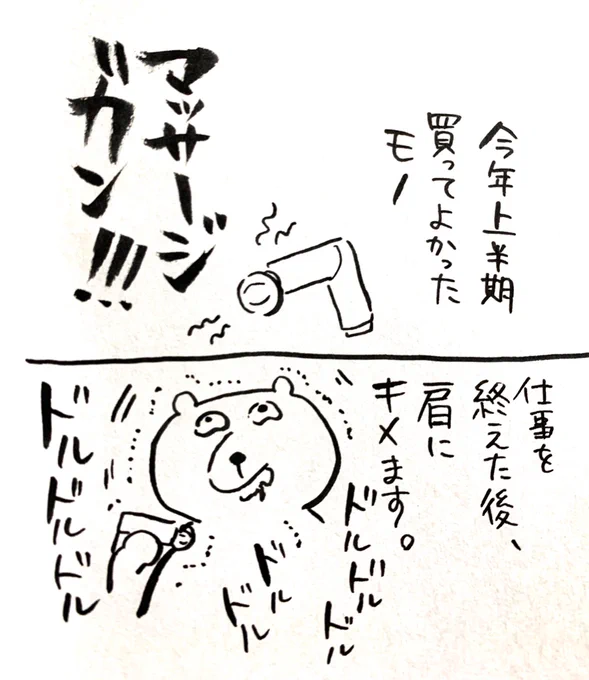 今年上半期
買ってよかった
モノ
マッサージ
ガン!!!
仕事を
終えた後、
肩に
キメます。
ドルドルドル
ドル
ドル
ドルドルドル